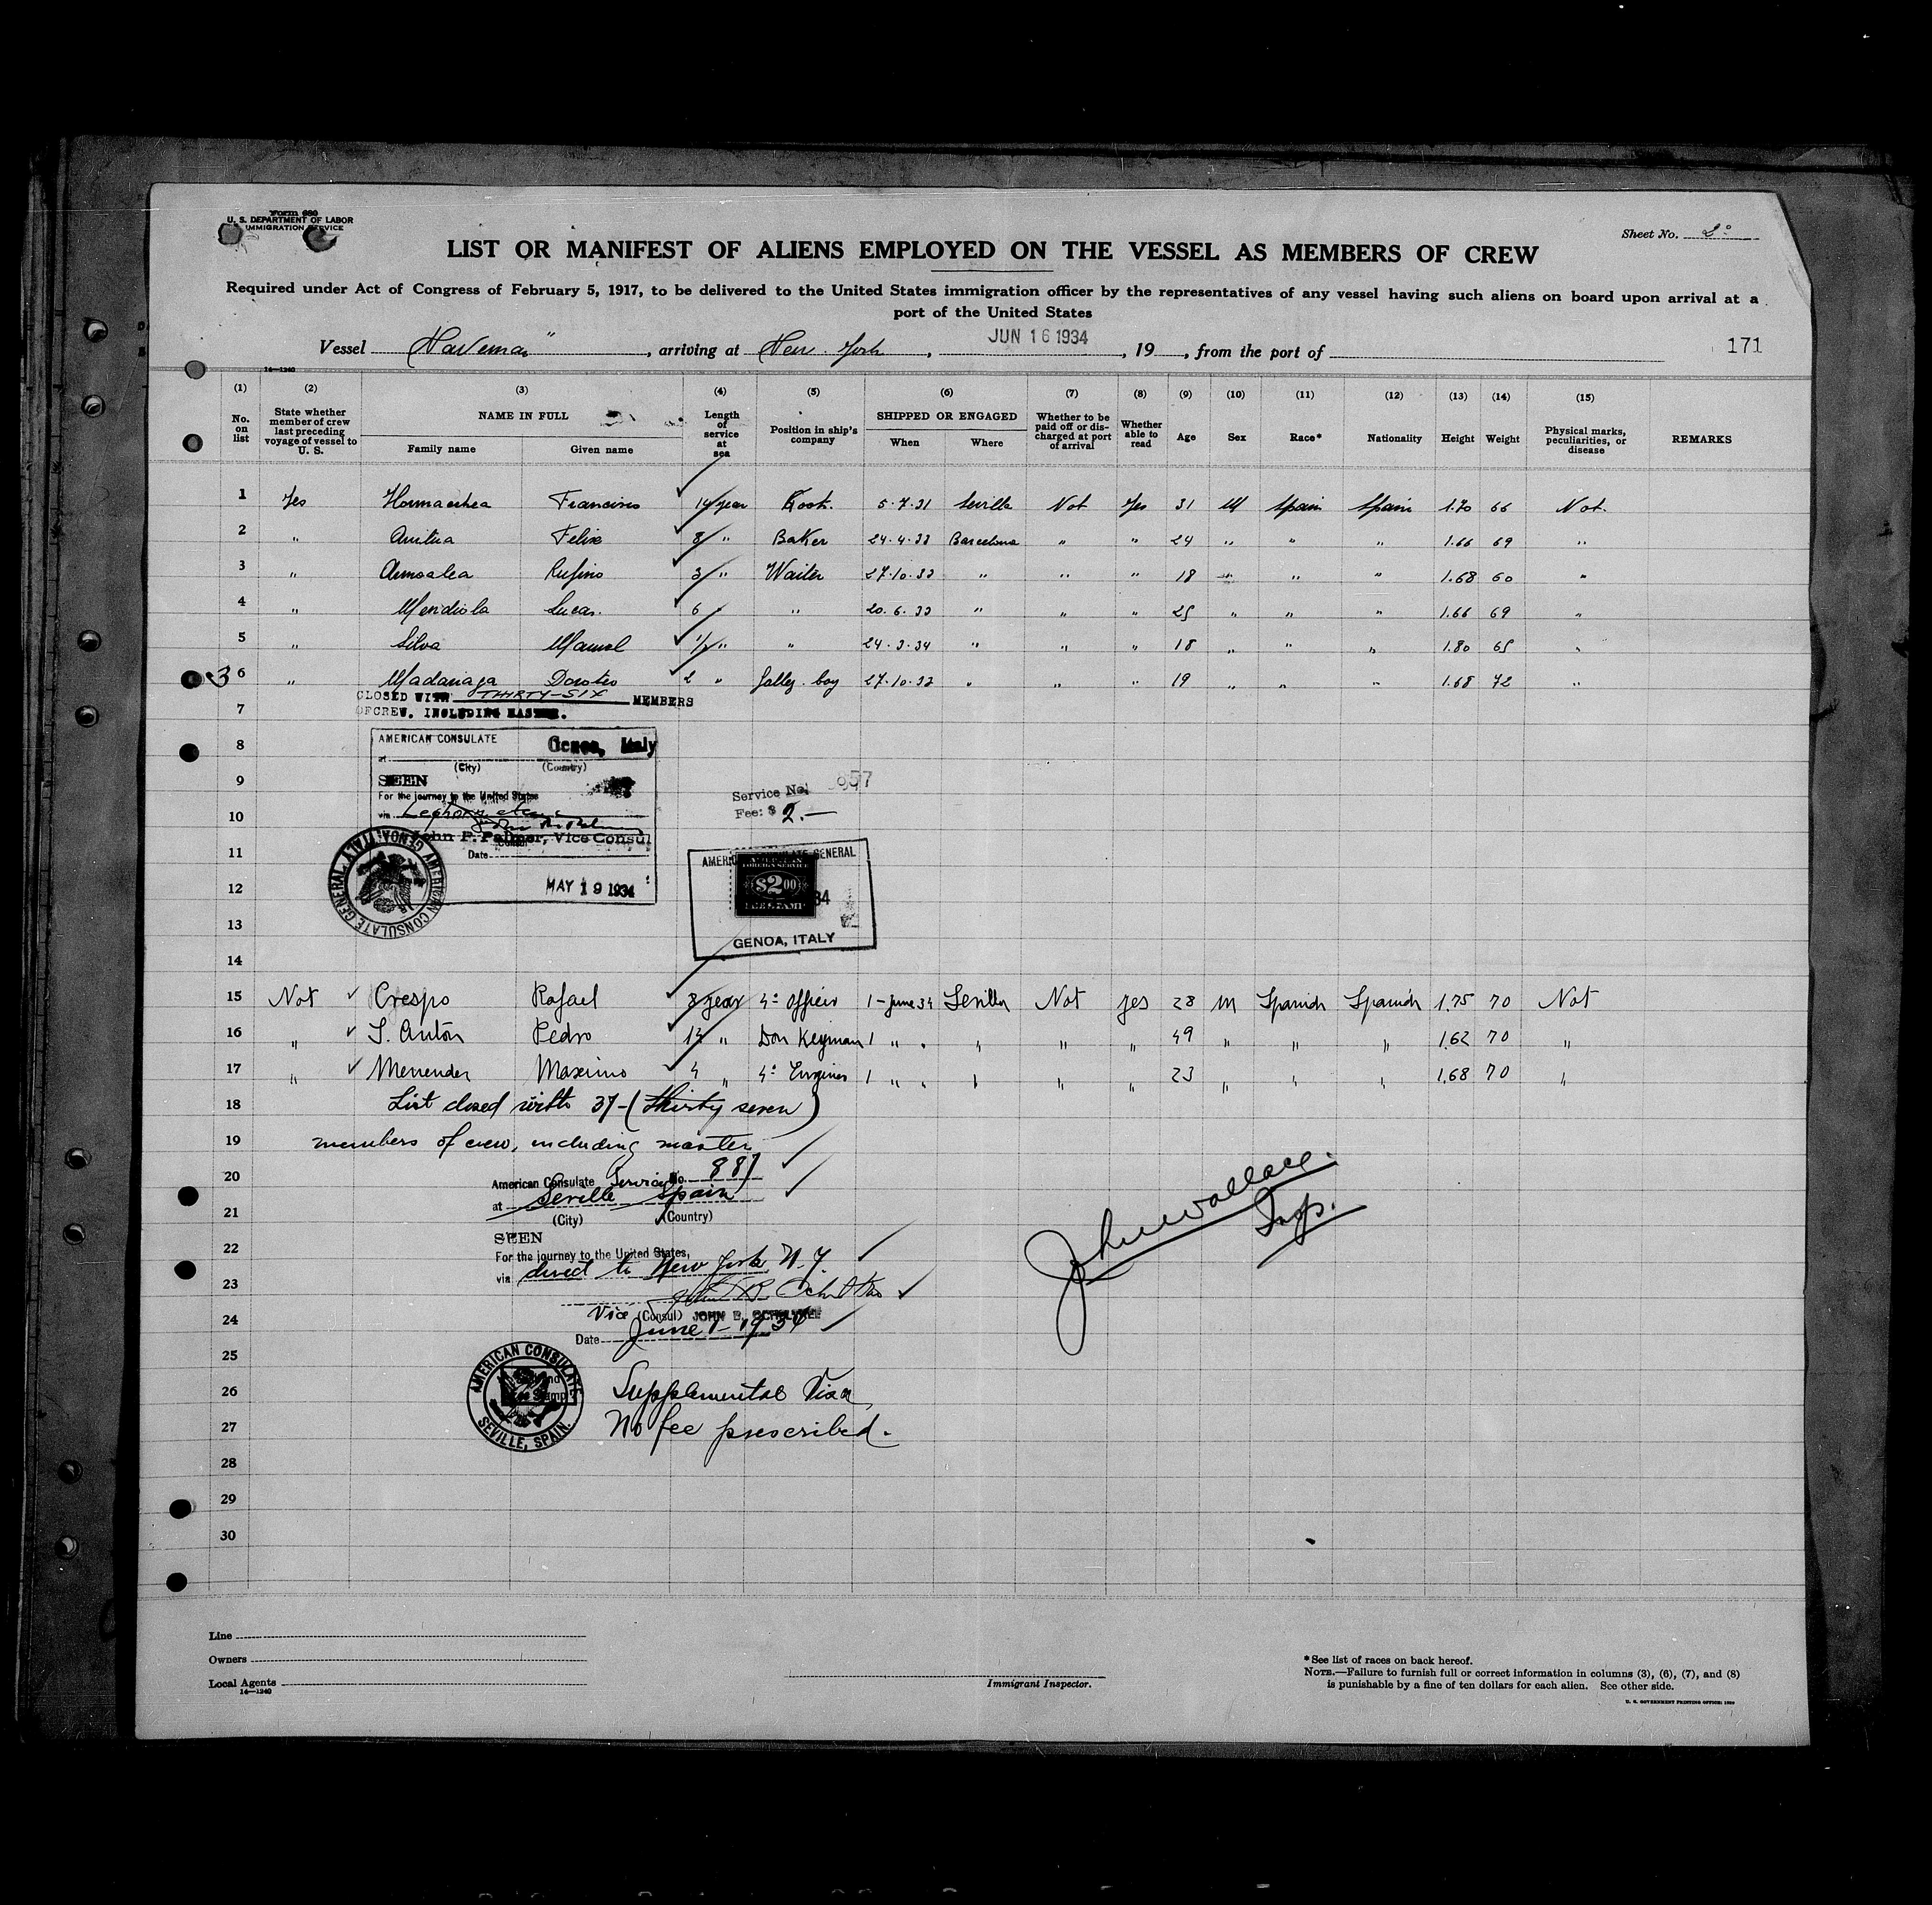 Form 680
U. S. DEPARTMENT OF LABOR
IMMIGRATION SERVICE
Sheet No. 2º
LIST OR MANIFEST OF ALIENS EMPLOYED ON THE VESSEL AS MEMBERS OF CREW
Required under Act of Congress of February 5, 1917, to be delivered to the United States immigration officer by the representatives of any vessel having such aliens on board upon arrival at a
port of the United States
Vessel , arriving at New York , JUN 16 1934 , 19 , from the port of 171
14—1240
(1) (2) (3) (4) (5) (6) (7) (8) (9) (10) (11) (12) (13) (14) (15)
No. on list State whether member of crew last preceding voyage of vessel to U. S. NAME IN FULL Family name Given name Length of service at sea Position in ship's company SHIPPED OR ENGAGED When Where Whether to be paid off or discharged at port of arrival Whether able to read Age Sex Race* Nationality Height Weight Physical marks, peculiarities, or disease REMARKS
1 Yes Hormaechea Francisco 14 year Cook. 5-7-31 Seville Not Yes 31 M Spain Spain 1.70 66 Not.
2 " Felix 8 " Baker 24-4-33 Barcelona " " 24 " " " 1.66 69 "
3 " Rufino 3 " Waiter 27-10-33 " " " 18 " " " 1.68 60 "
4 " Mendiola Lucas. 6 " " 20-6-33 " " " 25 " " " 1.66 69 "
5 " Silva Manuel 1/2 " " 24-3-34 " " " 18 " " " 1.80 65 "
3 6 " Madariaga Doroteo 2 " Galley boy 27-10-33 " " " 19 " " " 1.68 72 "
CLOSED WITH THIRTY-SIX MEMBERS
7 OF CREW, INCLUDING MASTER.
8 AMERICAN CONSULATE Genoa, Italy
at (City) (Country)
9 SEEN
For the journey to the United States
Service No. 857
10 via Leghorn
Fee: $ 2.—
John F. Palmer, Vice Consul
11 Date
AMERICAN CONSULATE GENERAL
AMERICAN FOREIGN SERVICE
12 MAY 19 1934
$2.00
FEE STAMP
34
AMERICAN CONSULATE GENERAL GENOA, ITALY
13 GENOA, ITALY
14
15 Not Crespo Rafael 8 year 4º officer 1-june 34 Sevilla Not yes 28 m Spanish Spanish 1.75 70 Not
16 " S. Anton Pedro 14 " Don Keyman 1 " " " " " 49 " " " 1.62 70 "
17 " Menendez Maximo 4 " 4º Engineer 1 " " " " " 23 " " " 1.68 70 "
18 List closed with 37-(thirty seven)
19 members of crew, including master
20 American Consulate Service No. 887
at Seville Spain
21 (City) (Country)
22 SEEN
For the journey to the United States,
via direct to New York N.Y.
23
24 Vice (Consul)
Date June 1-1934
John Wallace.
Insp.
25 AMERICAN CONSULATE
SEVILLE, SPAIN.
26 Supplemental Visa
27 No fee prescribed.
28
29
30
Line
Owners
Local Agents
14—1240
Immigrant Inspector.
*See list of races on back hereof.
NOTE.—Failure to furnish full or correct information in columns (3), (6), (7), and (8)
is punishable by a fine of ten dollars for each alien. See other side.
U. S. GOVERNMENT PRINTING OFFICE: